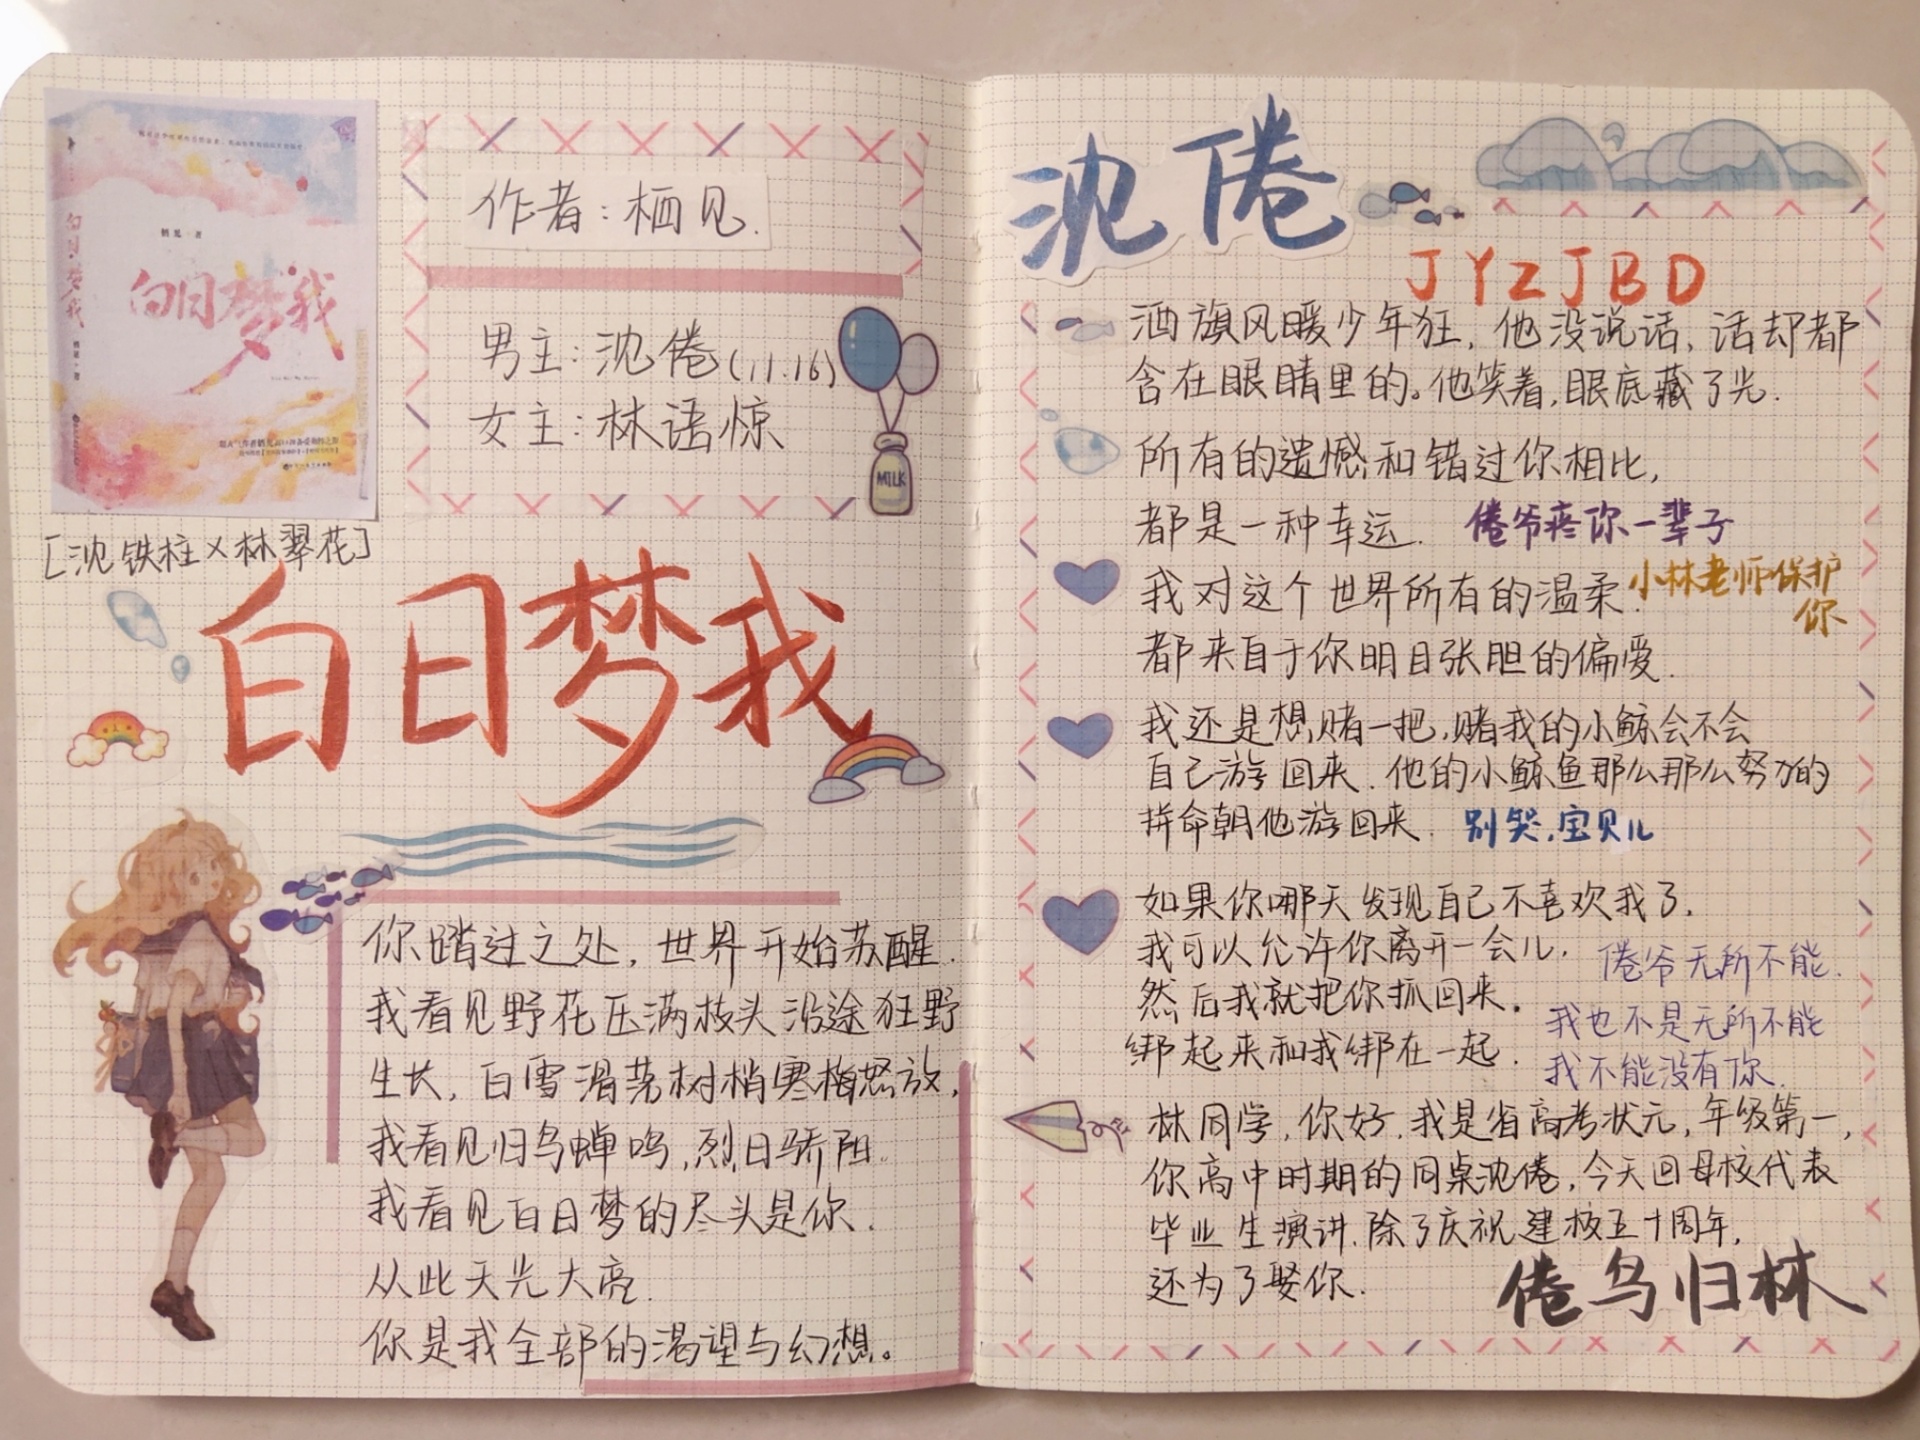 栖见 著
白日梦我
白日梦我
作者：栖见.
男主：沈倦(11.16)
女主：林语惊
MILK
[沈铁柱×林翠花]
白日梦我
你踏过之处，世界开始苏醒.
我看见野花压满枝头沿途狂野
生长，白雪滑落树梢寒梅怒放，
我看见归鸟蝉鸣，烈日骄阳。
我看见白日梦的尽头是你.
从此天光大亮.
你是我全部的渴望与幻想。
沈倦
JYZJBD
酒旗风暖少年狂，他没说话，话却都
含在眼睛里的。他笑着，眼底藏了光.
所有的遗憾和错过你相比，
都是一种幸运.
倦爷疼你一辈子
我对这个世界所有的温柔.
小林老师保护
你
都来自于你明目张胆的偏爱.
我还是想赌一把，赌我的小鲸会不会
自己游回来.他的小鲸鱼那么那么努力的
拼命朝他游回来.
别哭，宝贝儿
如果你哪天发现自己不喜欢我了，
我可以允许你离开一会儿，
然后我就把你抓回来。
绑起来和我绑在一起.
倦爷无所不能.
我也不是无所不能
我不能没有你.
林同学，你好，我是省高考状元，年级第一，
你高中时期的同桌沈倦，今天回母校代表
毕业生演讲.除了庆祝建校五十周年，
还为了娶你.
倦鸟归林